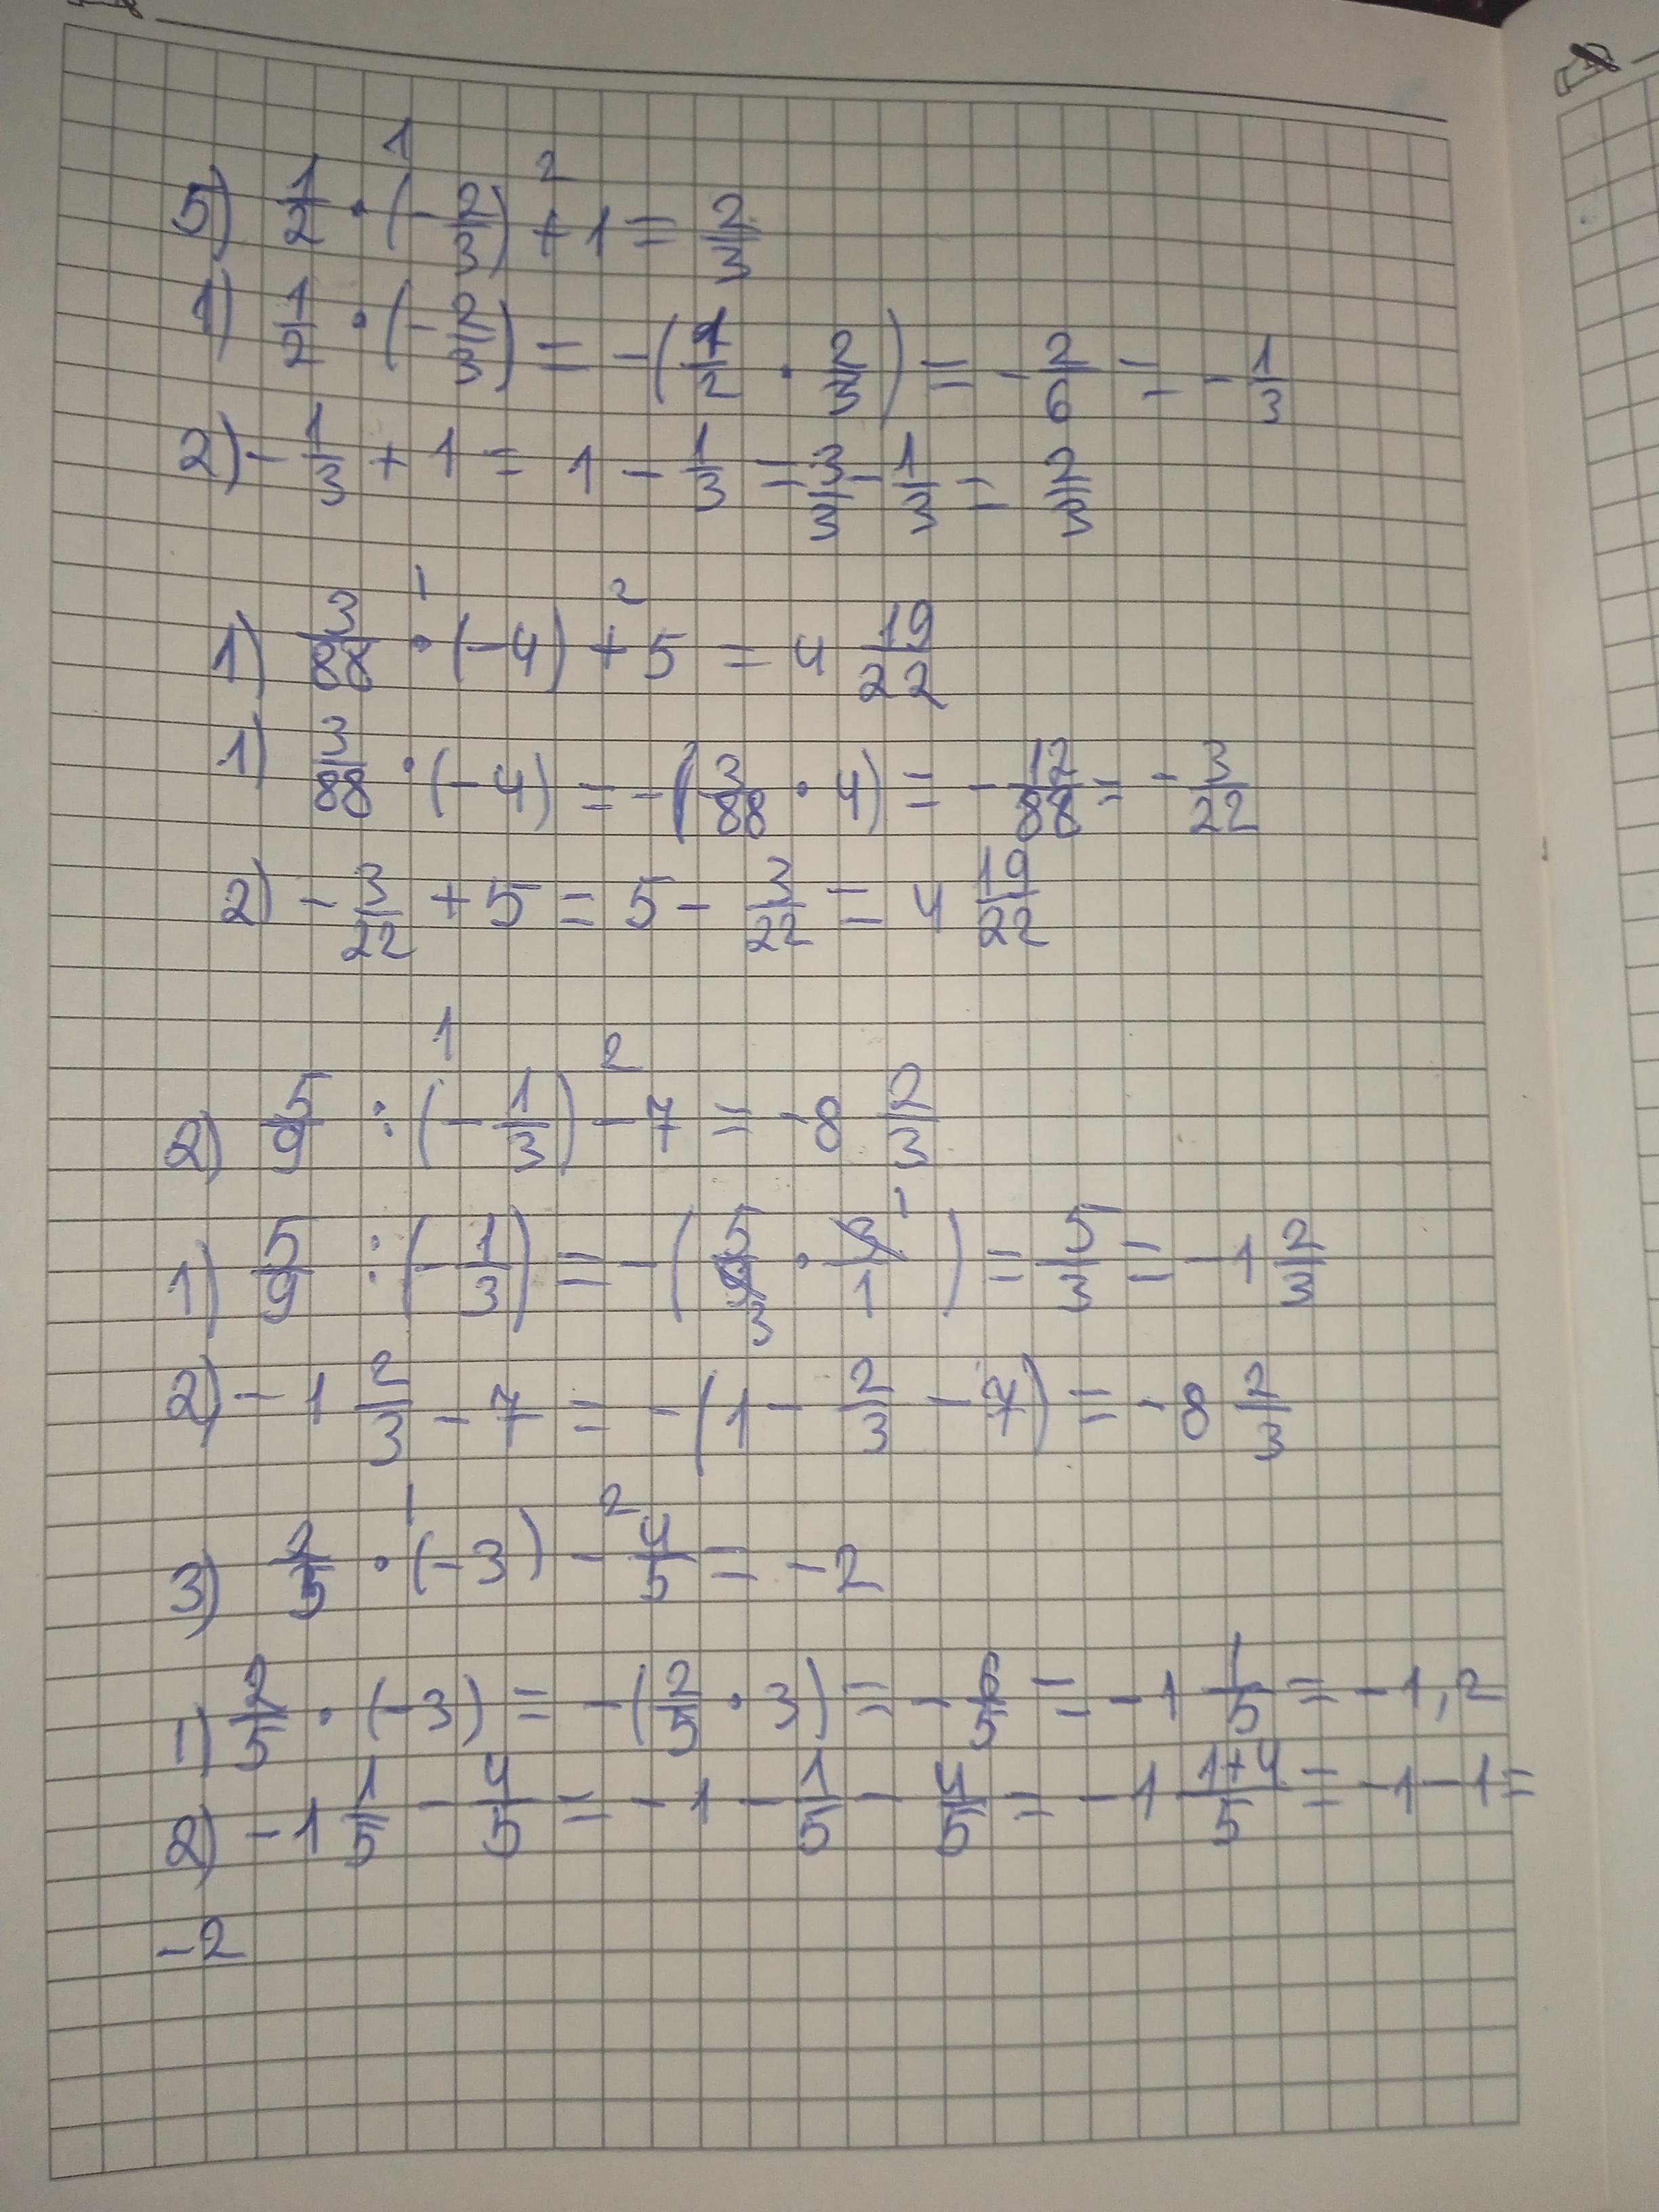 5) 1/2 · (-2/3) + 1 = 2/3
1) 1/2 · (-2/3) = -(1/2 · 2/3) = -2/6 = -1/3
2) -1/3 + 1 = 1 - 1/3 = 3/3 - 1/3 = 2/3
1) 3/88 · (-4) + 5 = 4 19/22
1) 3/88 · (-4) = -(3/88 · 4) = -12/88 = -3/22
2) -3/22 + 5 = 5 - 3/22 = 4 19/22
2) 5/9 : (-1/3) - 7 = -8 2/3
1) 5/9 : (-1/3) = -(5/9 · 3/1) = 5/3 = -1 2/3
2) -1 2/3 - 7 = -(1 - 2/3 - 7) = -8 2/3
3) 2/5 · (-3) - 4/5 = -2
1) 2/5 · (-3) = -(2/5 · 3) = -6/5 = -1 1/5 = -1,2
2) -1 1/5 - 4/5 = -1 - 1/5 - 4/5 = -1 1+4/5 = -1 - 1 =
-2